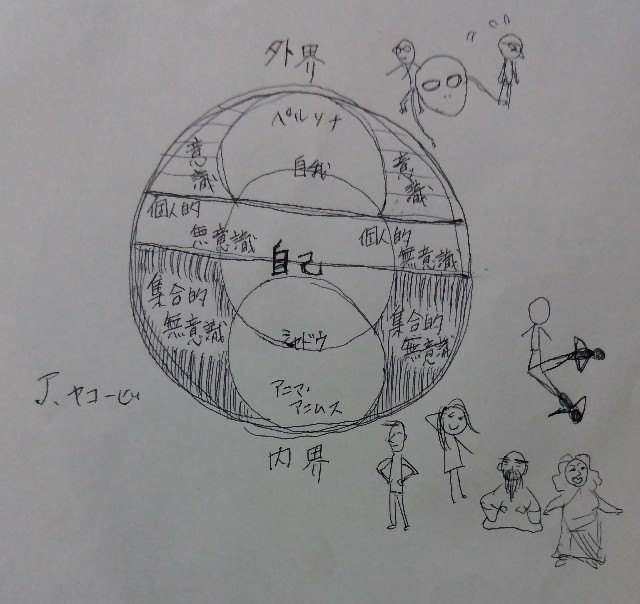 外界
ペルソナ
意識
意識
自我
個人的
無意識
個人的
無意識
自己
集合的
無意識
集合的
無意識
シャドウ
アニマ・
アニムス
J.ヤコービ
内界